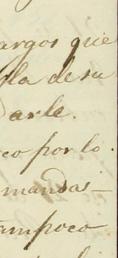 argos que
gla de su
arle.
co por lo
mandas
ampoco